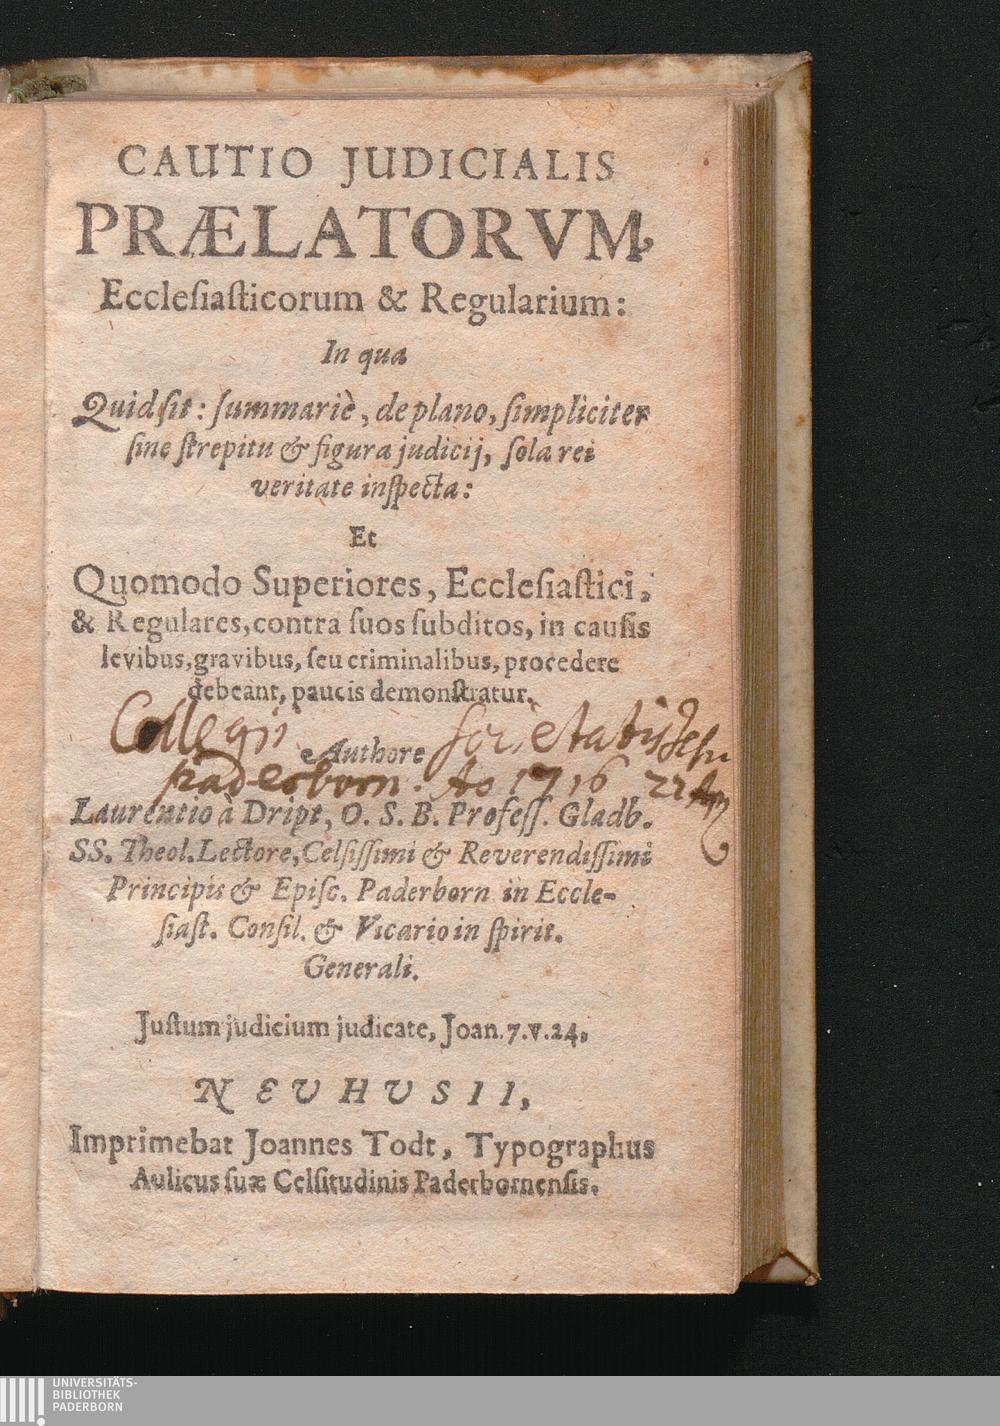 CAUTIO JUDICIALIS
PRÆLATORVM
Ecclesiasticorum & Regularium:
In qua
Quid sit: summariè, de plano, simpliciter
sine strepitu & figura judicij, sola rei
veritate inspecta:
Et
Quomodo Superiores, Ecclesiastici,
& Regulares, contra suos subditos, in causis
levibus, gravibus, seu criminalibus, procedere
debeant, paucis demonstratur.
Collegii Societatis Jesu
Authore
paderborn. Ao 1716 22
Laurentio à Dript, O. S. B. Profess. Gladb.
SS. Theol. Lectore, Celsissimi & Reverendissimi
Principis & Episc. Paderborn in Eccle-
siast. Consil. & Vicario in spirit.
Generali.
Justum judicium judicate, Joan. 7. v. 24,
NEUHUSII,
Imprimebat Joannes Todt, Typographus
Aulicus suæ Celsitudinis Paderbornensis.
UNIVERSITÄTS-
BIBLIOTHEK
PADERBORN